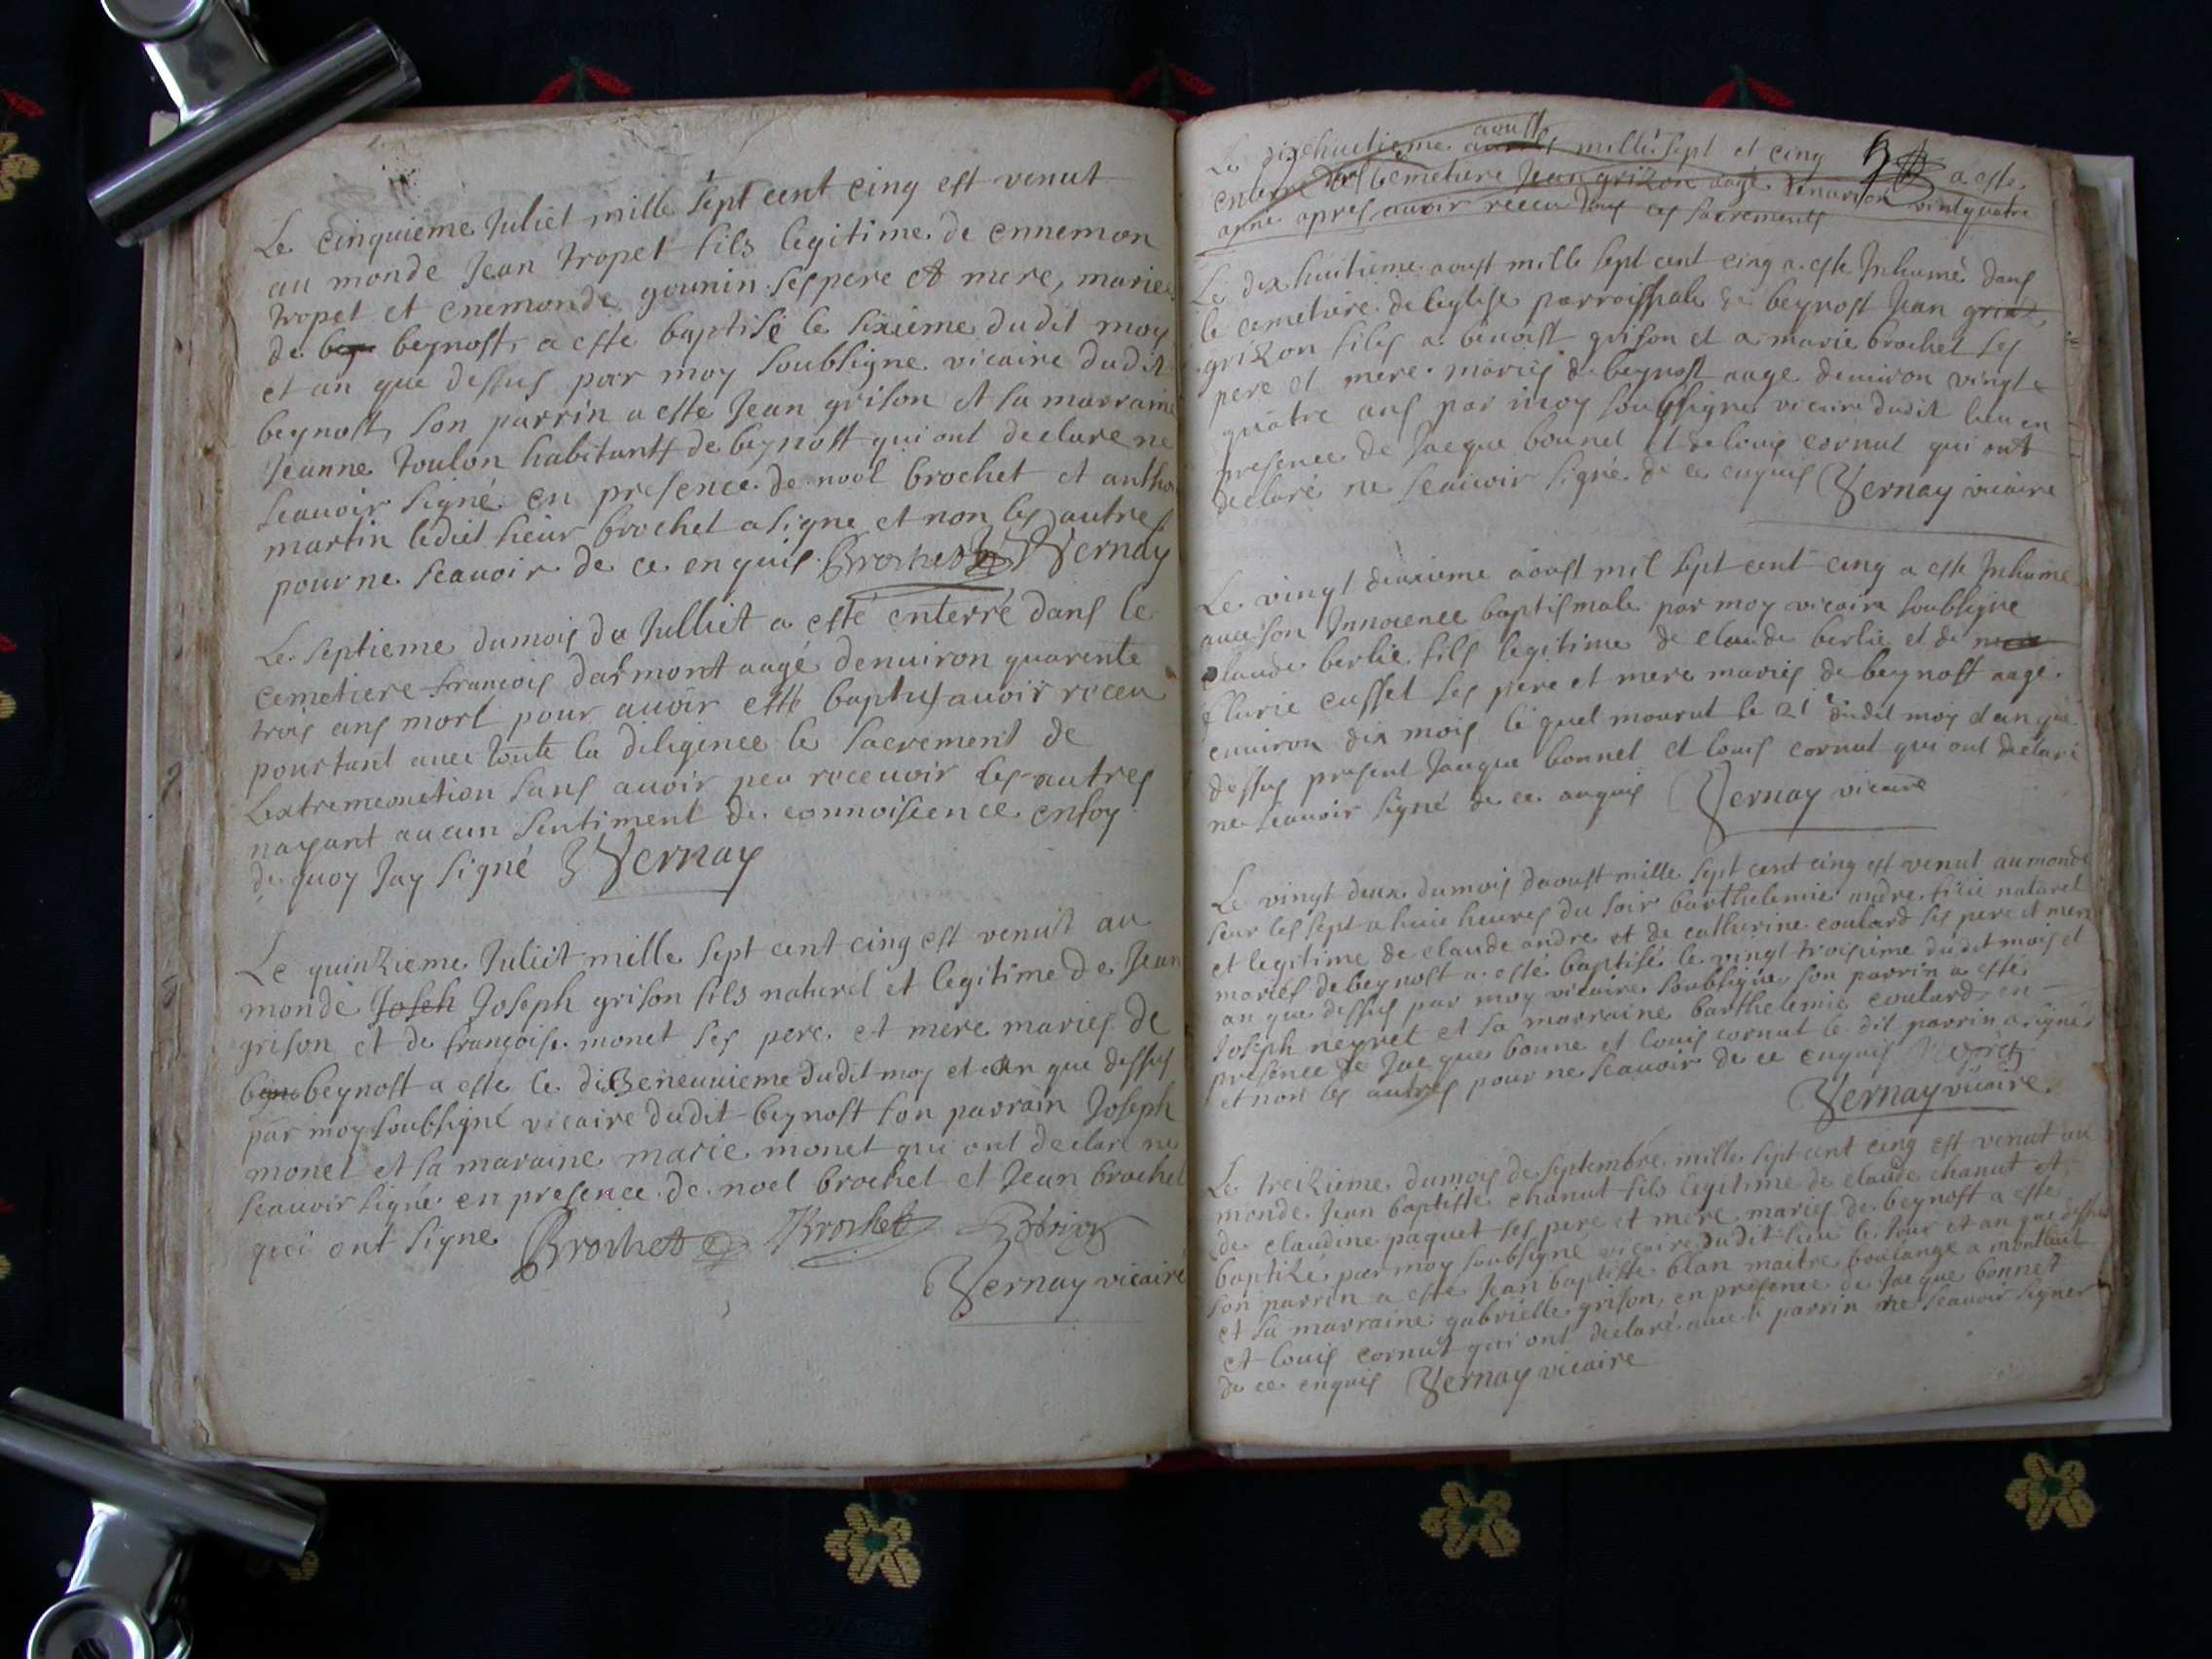 Le cinquieme Juliet mille sept cent cinq est venut
au monde Jean tropet fils legitime de ennemon
tropet et enemonde gounin ses pere et mere, maries
de bey beynost, a esté baptisé le sixieme dudit moys
et an que dessus par moy soubsigne vicaire dudit
beynost, son parrin a este Jean grison et sa marraine
Jeanne Toulon habitants de beynost qui ont declare ne
scauoir signé en presence de noel brochet et antho
martin ledict sieur brochet a signe et non les autres
pour ne scauoir de ce enquis Brochet Vernay
Le septieme dumois de Julliet a esté enterré dans le
cemetiere françois darmont aagé denuiron quarente
trois ans mort pour auoir este auoir receu
pourtant auec toute la diligence le sacrement de
Lextremeonction sans auoir peu receuoir les autres
nayant aucun sentiment de connoissence enfoy
de quoy Jay signé Vernay
Le quinzieme Juliet mille sept cent cinq est venut au
monde Joseh Joseph grison fils naturel et legitime de Jean
grison et de françoise monet ses pere et mere maries de
beyno beynost a este le dizeneuuieme dudit moy et an que dessus
par moy soubsigné vicaire dudit beynost son parrain Joseph
monet et sa maraine marie monet qui ont declare ne
scauoir signé en presence de noel brochet et Jean brochet
qui ont signe Brochet Brochet
Vernay vicaire
Le dixhuitieme aoust mille sept et cinq a este
enterre dans le cemetiere Jean grizon aagé denuiron vintquatre
anné apres auoir receu tous ces sacrements
Le dix huitieme aoust mille sept cent cinq a este Inhumé dans
le cemetiere de leglise parroissiale de beynost Jean
grizon fils a benoist grison et a marie brochet ses
pere et mere mariés de beynost aage denuiron vingt
quatre ans par moy soubsigne vicaire dudit lieu en
presence de Jacque bonnet et de louis cornut qui ont
declaré ne scauoir signé de ce enquis Vernay vicaire
Le vingt deuxieme aoust mil sept cent cinq a este Inhumé
auec son Innocence baptismale par moy vicaire soubsigne
claude berlie fils legitime de claude berlie et de
flurie cusset ses pere et mere mariés de beynost aagé
enuiron dix mois le quel mourut le 21e dudit moy et an que
dessus present Jacque bonnet et louis cornut qui ont declaré
ne scauoir signé de ce anquis Vernay vicaire
Le vingt deux dumois daoust mille sept cent cinq est venut aumonde
seur les sept a huit heures du soir barthelemie andre naturel
et legitime de claude andre et de catherine coulard ses pere et mere
mariés de beynost a esté baptisé le vingt troisieme dudit mois et
an que dessus par moy vicaire soubsigné son parrin a esté
Joseph neyret et sa marraine barthelemie coulard en
presence de Jacques bonne et louis cornut le dit parrin a signé
et non les autres pour ne scauoir de ce enquis Neyret
Vernay vicaire
Le treizieme dumois de septembre mille sept cent cinq est venut au
monde Jean baptiste chanut fils legitime de claude chanut et
de claudine paquet ses pere et mere mariés de beynost a esté
baptizé par moy soubsigné vicaire dudit lieu le Jour et an que dessus
son parrin a esté Jean baptiste blan maitre boulange a montluel
et sa marraine gabrielle grison, en presence de Jacque bonnet
et louis cornut qui ont declaré auec le parrin ne scauoir signer
de ce enquis Vernay vicaire